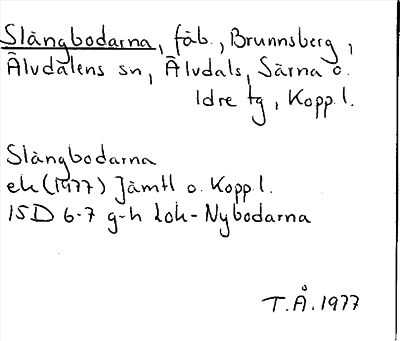 Slängbodarna, fäb., Brunnsberg,
Älvdalens sn, Älvdals, Särna o.
Idre tg, Kopp.l.
Slängbodarna
ek (1977) Jämtl o. Kopp.l.
15D 6-7 g-h Lok-Nybodarna
T.Å.1977